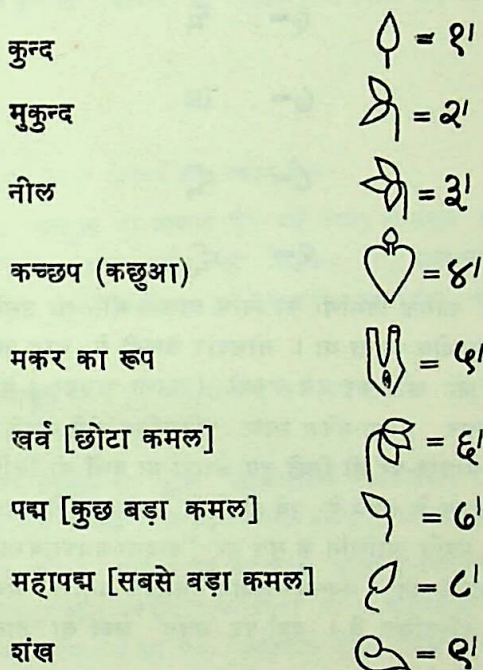 कुन्द = १।
मुकुन्द = २।
नील = ३।
कच्छप (कछुआ) = ४।
मकर का रूप = ५।
खर्व [छोटा कमल] = ६।
पद्म [कुछ बड़ा कमल] = ७।
महापद्म [सबसे बड़ा कमल] = ८।
शंख = ९।